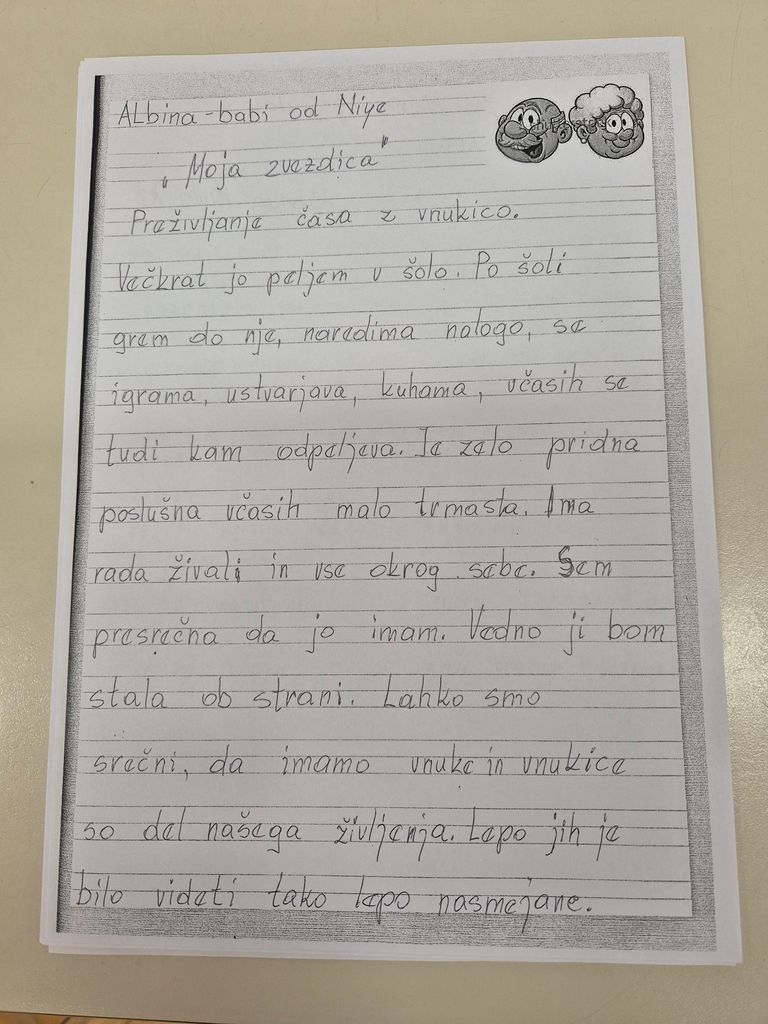 Albina-babi od Niye
„Moja zvezdica"
Preživljanje časa z vnukico.
Večkrat jo peljem v šolo. Po šoli
grem do nje, naredima nalogo, se
igrama, ustvarjava, kuhama, včasih se
tudi kam odpeljeva. Je zelo pridna
poslušna včasih malo trmasta. Ima
rada živali in vse okrog sebe. Sem
presrečna da jo imam. Vedno ji bom
stala ob strani. Lahko smo
srečni, da imamo vnuke in vnukice
so del našega življenja. Lepo jih je
bilo videti tako lepo nasmejane.